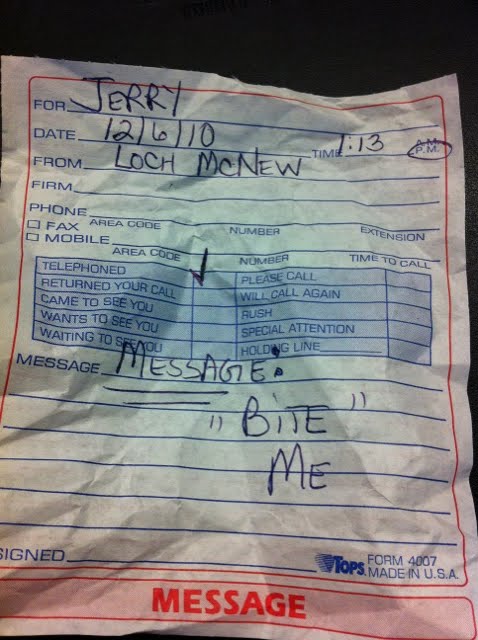 FOR JERRY
DATE 12/6/10 TIME 1:13 A.M. P.M.
FROM LOCH MCNEW
FIRM
PHONE
AREA CODE NUMBER EXTENSION
☐ FAX
☐ MOBILE
AREA CODE NUMBER TIME TO CALL
TELEPHONED ✓ PLEASE CALL
RETURNED YOUR CALL WILL CALL AGAIN
CAME TO SEE YOU RUSH
WANTS TO SEE YOU SPECIAL ATTENTION
WAITING TO SEE YOU HOLDING LINE
MESSAGE MESSAGE:
"BITE"
ME
SIGNED
TOPS FORM 4007
MADE IN U.S.A.
MESSAGE